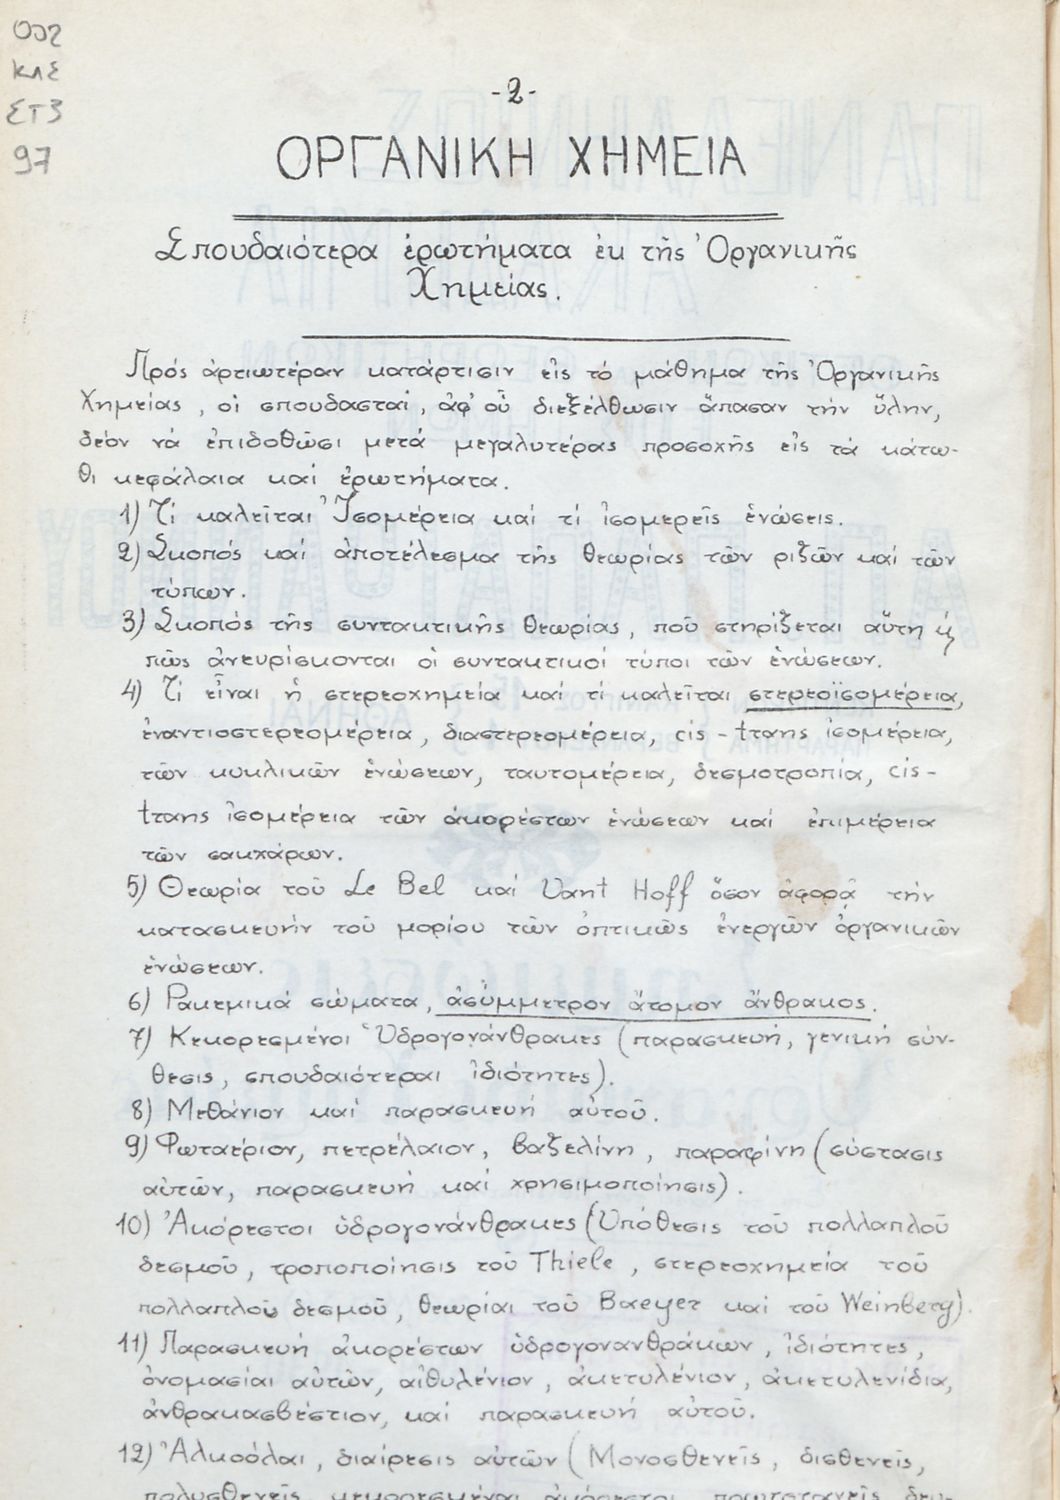 002
ΚΛΣ
ΣΤ3
97
-2-
ΟΡΓΑΝΙΚΗ ΧΗΜΕΙΑ
Σπουδαιότερα ἐρωτήματα ἐκ τῆς Ὀργανικῆς
Χημείας.
Πρός ἀρτιωτέραν κατάρτισιν εἰς τό μάθημα τῆς Ὀργανικῆς
Χημείας, οἱ σπουδασταί, ἀφ' οὗ διεξέλθωσιν ἅπασαν τήν ὕλην,
δέον νά ἐπιδοθῶσι μετά μεγαλυτέρας προσοχῆς εἰς τά κάτω-
θι κεφάλαια καί ἐρωτήματα.
1) Τί καλεῖται Ἰσομέρεια καί τί ἰσομερεῖς ἑνώσεις.
2) Σκοπός καί ἀποτέλεσμα τῆς θεωρίας τῶν ριζῶν καί τῶν
τύπων.
3) Σκοπός τῆς συντακτικῆς θεωρίας, ποῦ στηρίζεται αὕτη ϗ
πῶς ἀνευρίσκονται οἱ συντακτικοί τύποι τῶν ἑνώσεων.
4) Τί εἶναι ἡ στερεοχημεία καί τί καλεῖται στερεοϊσομέρεια,
ἐναντιοστερεομέρεια, διαστερεομέρεια, cis - trans ἰσομέρεια,
τῶν κυκλικῶν ἑνώσεων, ταυτομέρεια, δεσμοτροπία, cis -
trans ἰσομέρεια τῶν ἀκορέστων ἑνώσεων καί ἐπιμέρεια
τῶν σακχάρων.
5) Θεωρία τοῦ Le Bel καί Vant Hoff ὅσον ἀφορᾷ τήν
κατασκευήν τοῦ μορίου τῶν ὀπτικῶς ἐνεργῶν ὀργανικῶν
ἑνώσεων.
6) Ρακεμικά σώματα, ἀσύμμετρον ἄτομον ἄνθρακος.
7) Κεκορεσμένοι Ὑδρογονάνθρακες (παρασκευή, γενική σύν-
θεσις, σπουδαιότεραι ἰδιότητες).
8) Μεθάνιον καί παρασκευή αὐτοῦ.
9) Φωταέριον, πετρέλαιον, βαζελίνη, παραφίνη (σύστασις
αὐτῶν, παρασκευή καί χρησιμοποίησις).
10) Ἀκόρεστοι ὑδρογονάνθρακες (Ὑπόθεσις τοῦ πολλαπλοῦ
δεσμοῦ, τροποποίησις τοῦ Thiele, στερεοχημεία τοῦ
πολλαπλοῦ δεσμοῦ, θεωρίαι τοῦ Baeyer καί τοῦ Weinberg).
11) Παρασκευή ἀκορέστων ὑδρογονανθράκων, ἰδιότητες,
ὀνομασίαι αὐτῶν, αἰθυλένιον, ἀκετυλένιον, ἀκετυλενίδια,
ἀνθρακασβέστιον, καί παρασκευή αὐτοῦ.
12) Ἀλκοόλαι, διαίρεσις αὐτῶν (Μονοσθενεῖς, δισθενεῖς,
πολυσθενεῖς